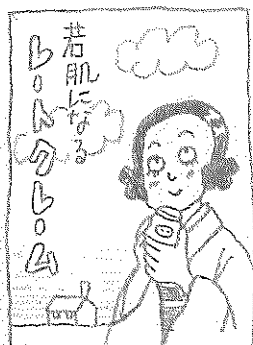 若肌になる
レートクレーム